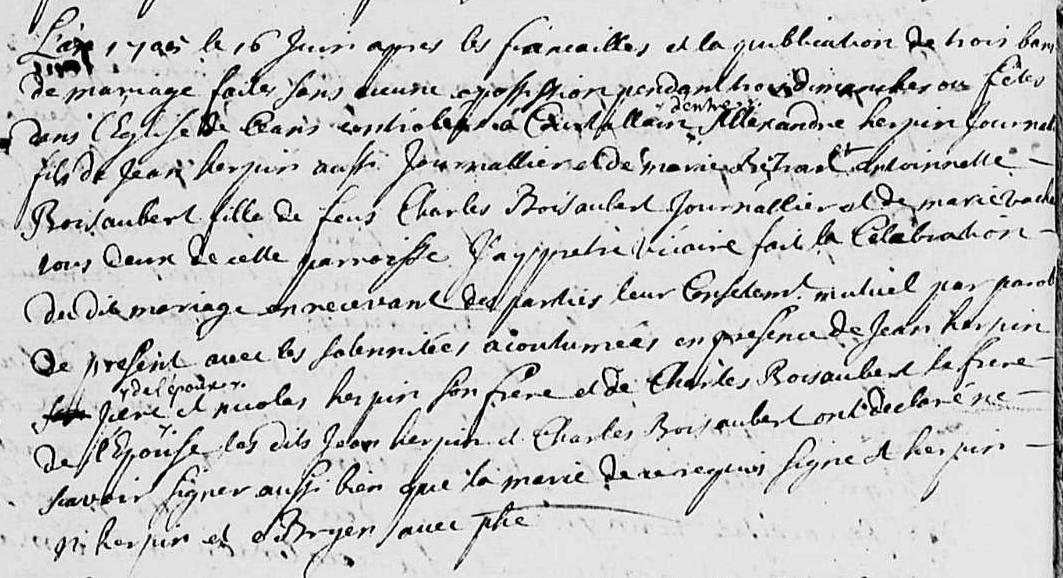 L'an le 16 Juin apres les fiancailles et la publication de trois bans
de mariage faites sans aucune opossission pendant trois dimanches ou fêtes
dans l'Eglise de Alexandre herpin Journal
fils de Jean herpin aussi Journallier et de marie et Antoinnette
Boisaubert fille de feus Charles Boisaubert Journallier et de marie
tous deux de cette parroisse J'ay pretre vicaire fait la Celebration
du dit mariage en recevant des parties leur mutuel par parol
De present avec les solennitées acoutumées en presence de Jean herpin
pere de l'epoux et nicolas herpin son frere et de Charles Boisaubert le frere
de l'Epouse les dits Jean herpin et Charles Boisaubert ont declaré ne
scavoir signer aussi bien que la mariée de ce requis signé A herpin
N herpin et avec